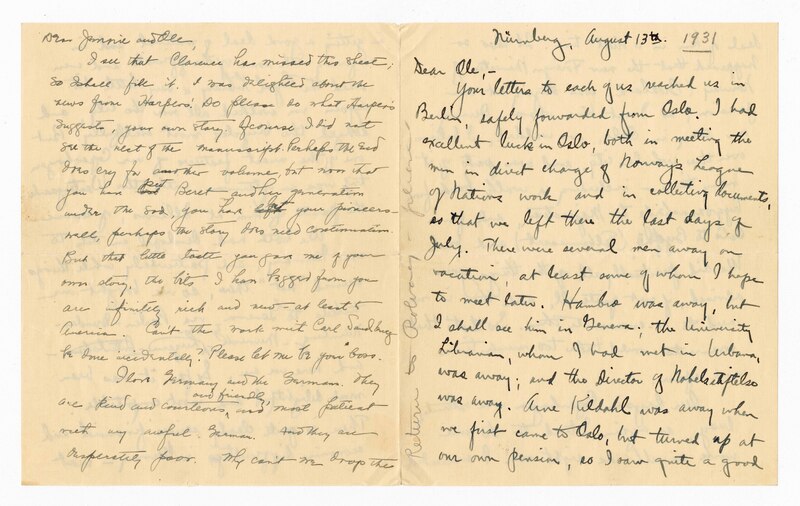 Dear Jennie and Ole,
I see that Clarence has missed this sheet;
so I shall fill it. I was delighted about the
news from Harpers. Do please do what Harper's
suggests, your own story. Ofcourse I did not
see the rest of the manuscript. Perhaps the end
does cry for another volume, but now that
you have put Beret and her generation
under the sod, you have left your pioneers–
well, perhaps the story does need continuation.
But that little taste you gave me of your
own story, the bits I have begged from you
are infinitely rich and new – at least to
America. Can't the work with Carl Sandburg
be done incidentally? Please let me be your boss.
I love Germany and the Germans. They
are kind and courteous, and friendly, and most patient
with my awful German. And they are
desperately poor. Why can't we drop the
Nürnberg, August 13th 1931
Dear Ole,–
Your letters to each of us reached us in
Berlin, safely forwarded from Oslo. I had
excellent luck in Oslo, both in meeting the
men in direct charge of Norway's League
of Nations work and in collecting documents,
so that we left there the last days of
July. There were several men away on
vacation, at least some of whom I hope
to meet later. Hambro was away, but
I shall see him in Geneva; the University
Librarian, whom I had met in Urbana,
was away; and the Director of Nobelstiftelse
was away. Arne Kildahl was away when
we first came to Oslo, but turned up at
our own pension, so I saw quite a good
Return to Rolvaag – please